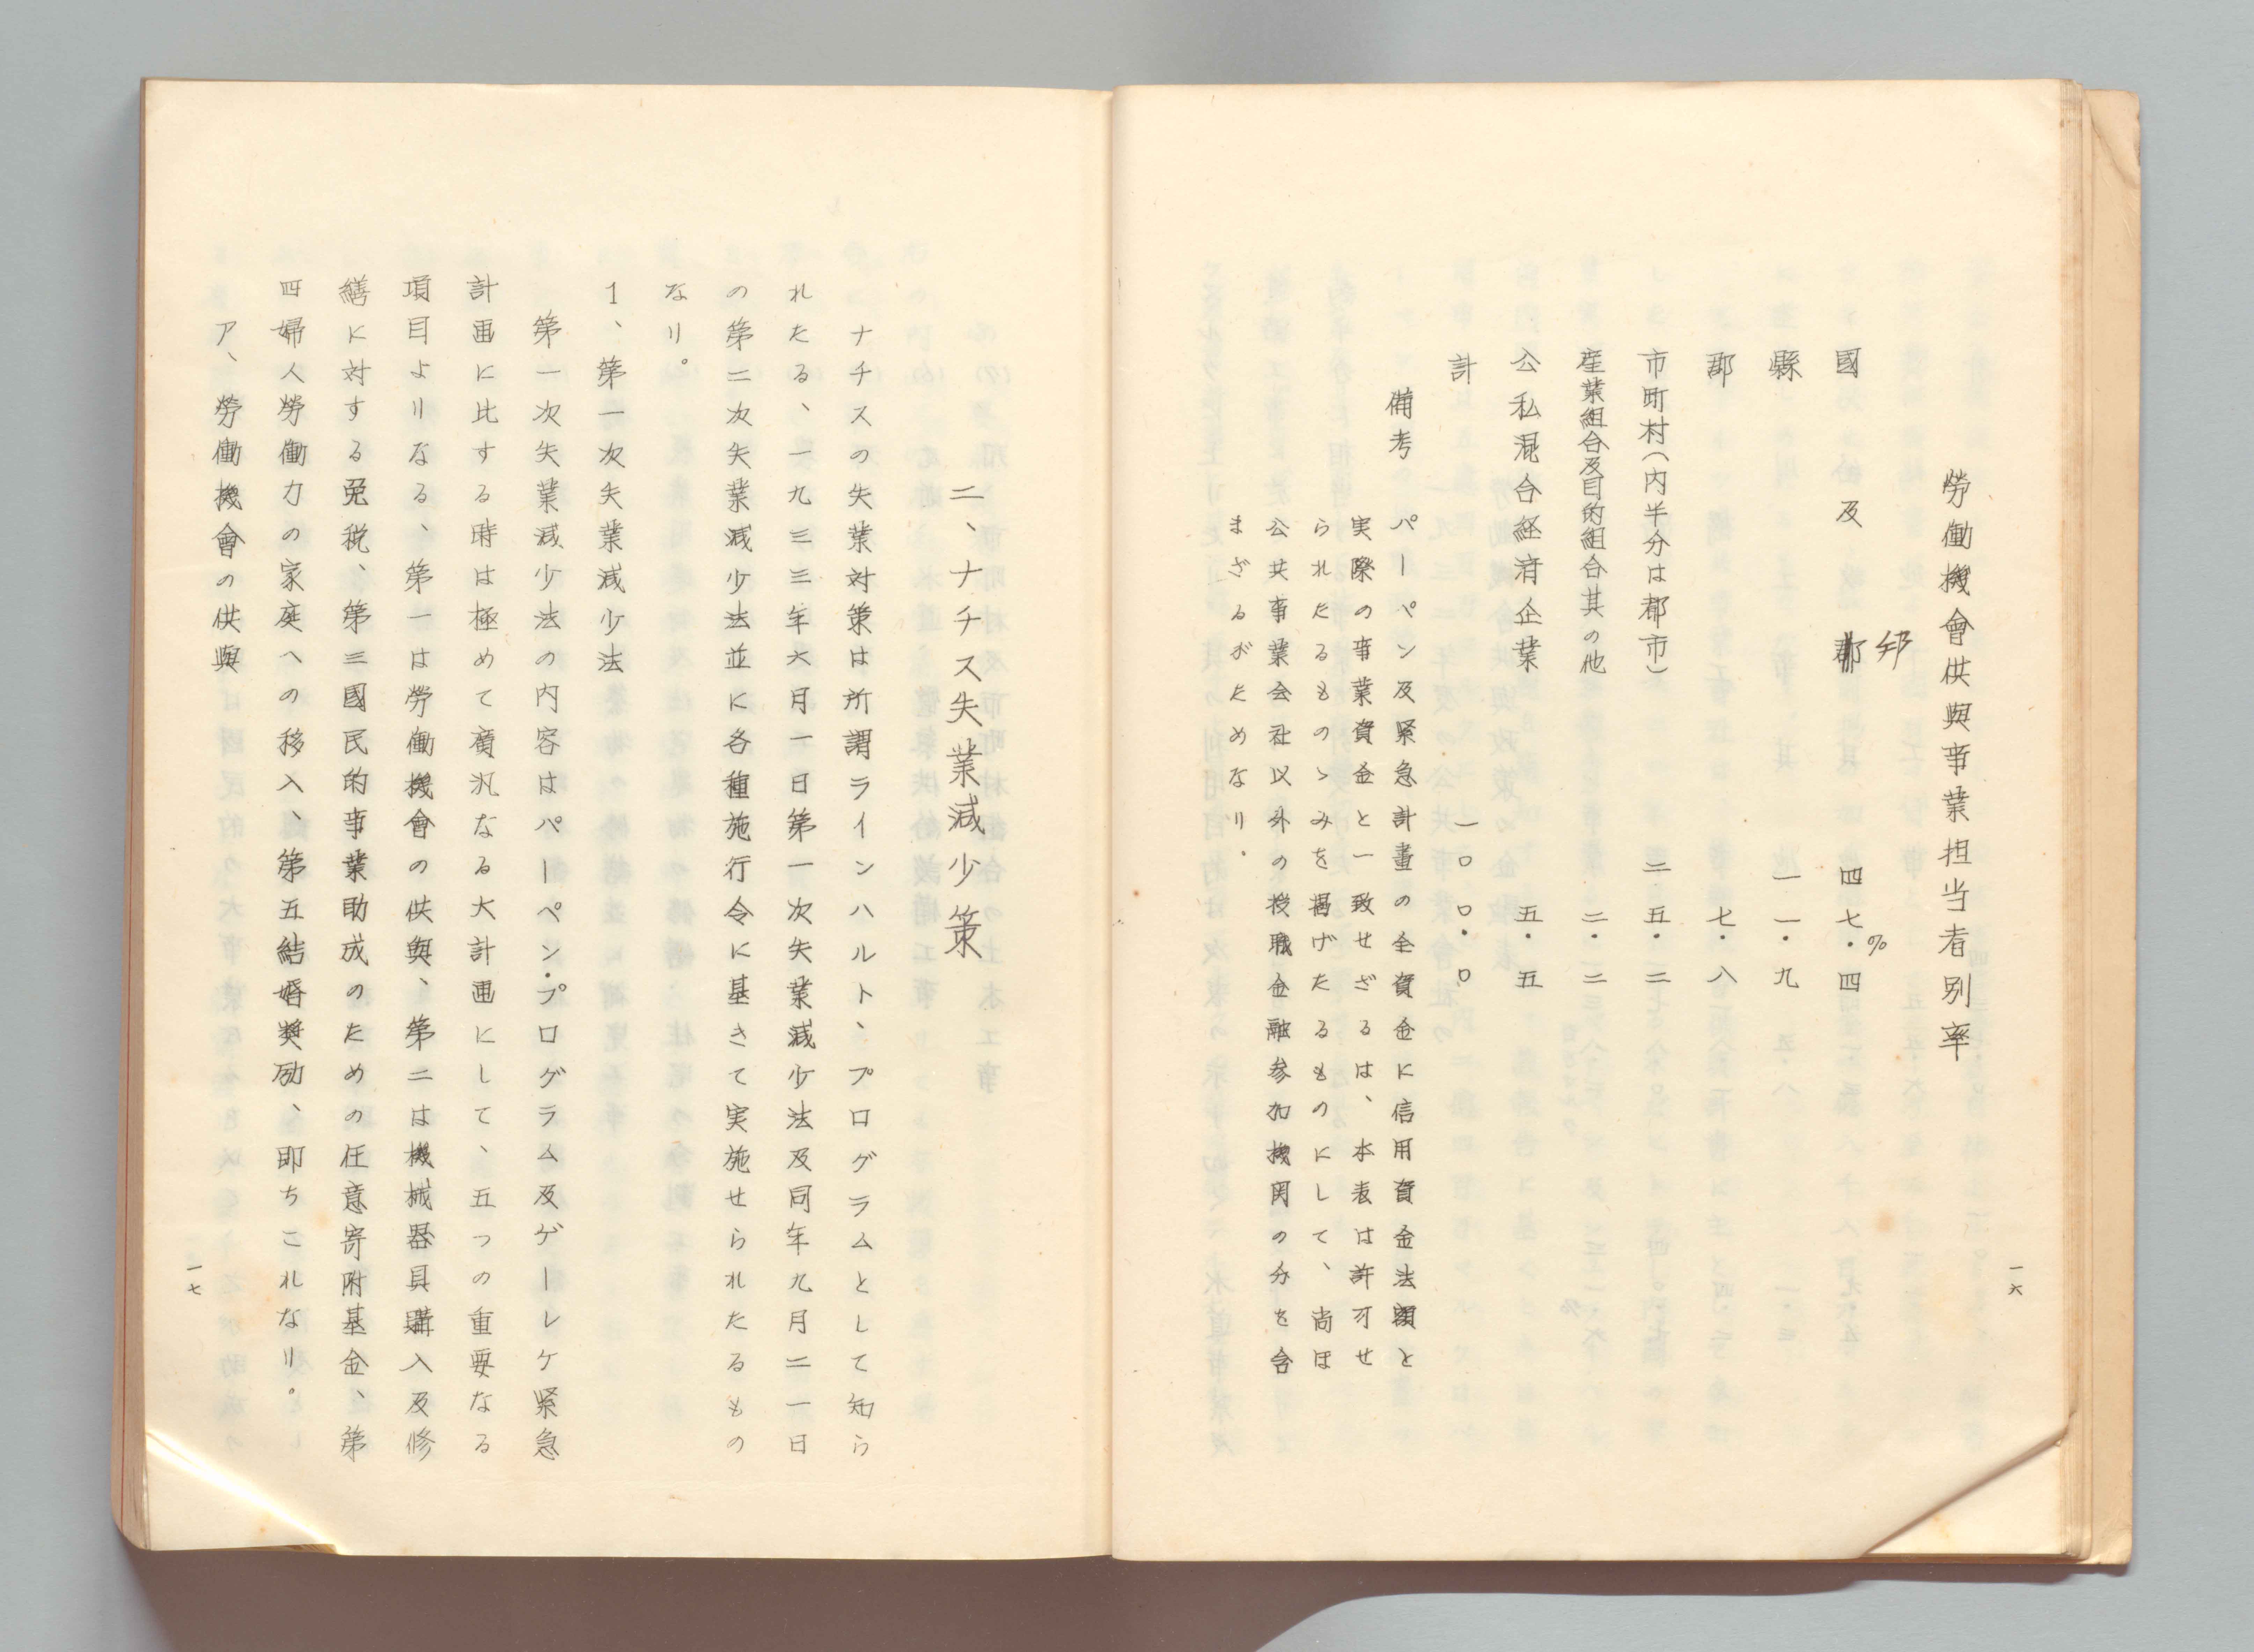 勞働機會供與事業担当者別率
國及邦 四七・四%
縣 一一・九
郡 七・八
市町村(内半分は都市) 二五・二
産業組合及目的組合其の他 二・二
公私混合経済企業 五・五
計 一〇〇・〇
備考
パーペン及緊急計畫の全資金に信用資金法額と
実際の事業資金と一致せざるは、本表は許可せ
られたるものゝみを掲げたるものにして、尚ほ
公共事業会社以外の授職金融参加機関の分を含
まざるがためなり.
一六
二、ナチス失業減少策
ナチスの失業対策は所謂ラインハルト、プログラムとして知ら
れたる、一九三三年六月一日第一次失業減少法及同年九月二一日
の第二次失業減少法並に各種施行令に基きて実施せられたるもの
なり。
1、第一次失業減少法
第一次失業減少法の内容はパーペン・プログラム及ゲーレケ緊急
計画に比する時は極めて廣汎なる大計画にして、五つの重要なる
項目よりなる、第一は勞働機會の供與、第二は機械器具購入及修
繕に対する免税、第三國民的事業助成のための任意寄附基金、第
四婦人勞働力の家庭への移入、第五結婚奨励、即ちこれなり。
ア、勞働機會の供與
一七